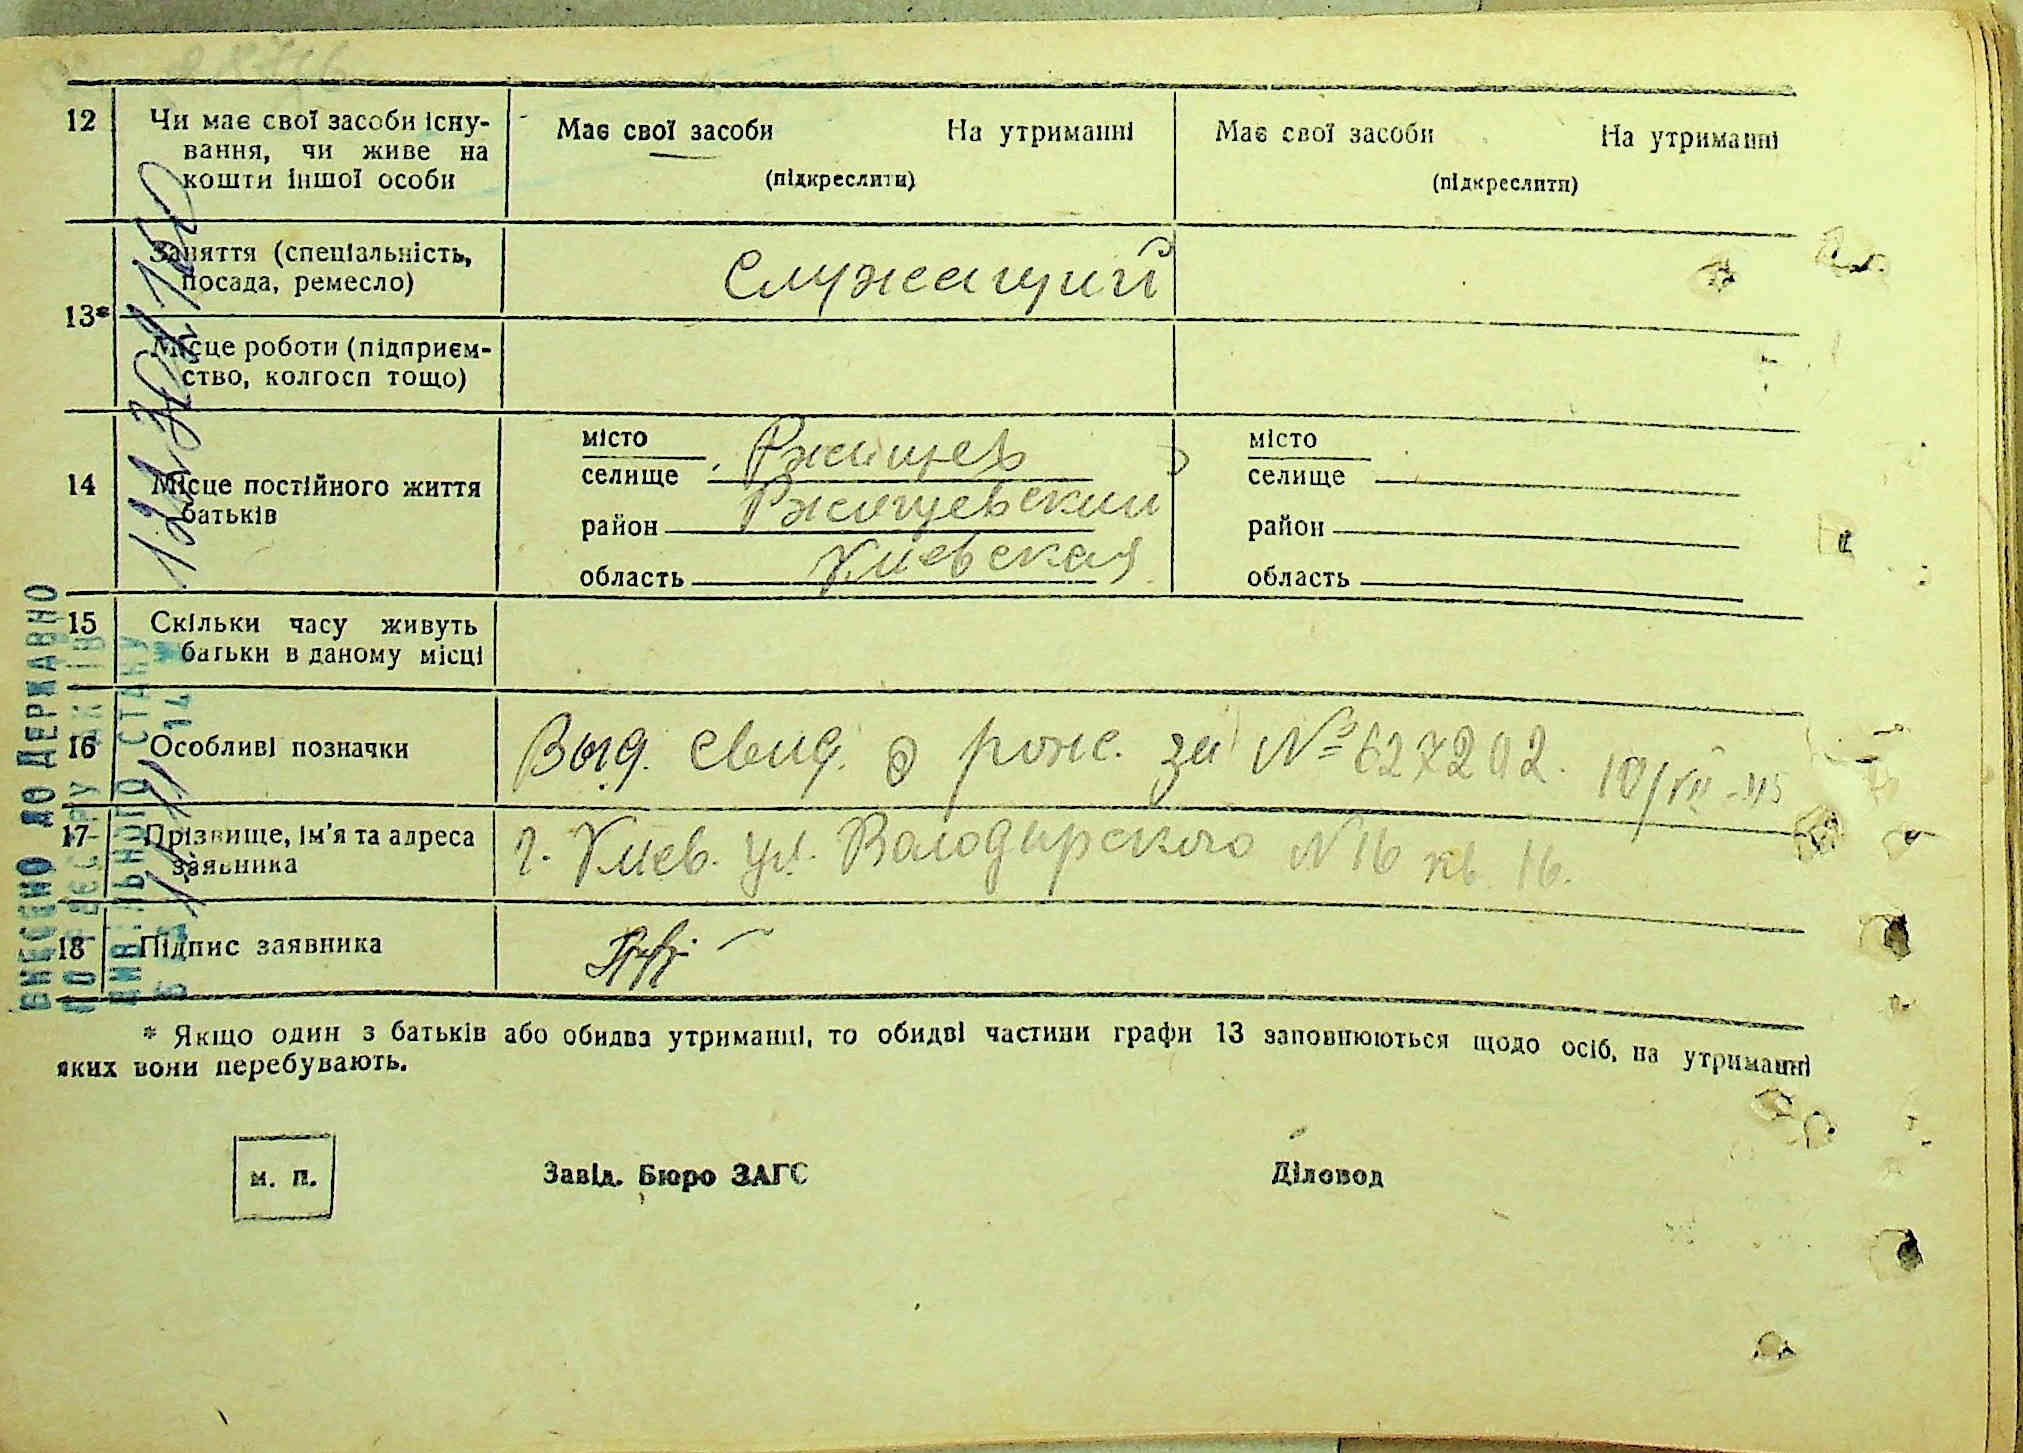 12 Чи має свої засоби існу-
вання, чи живе на
кошти іншої особи
Має свої засоби На утриманні
(підкреслити)
Має свої засоби На утриманні
(підкреслити)
13*
Заняття (спеціальність,
посада, ремесло)
Служащий
Місце роботи (підприєм-
ство, колгосп тощо)
14 Місце постійного життя
батьків
місто
селище Ржищев
район Ржищевский
область Киевская
місто
селище
район
область
15 Скільки часу живуть
батьки в даному місці
16 Особливі позначки
Выд. свид. о рож. за № 627202. 10/VII-45
17 Прізвище, ім'я та адреса
заявника
г. Киев. ул. Володирского N 16 кв 16.
18 Підпис заявника
* Якщо один з батьків або обидва утриманці, то обидві частини графи 13 заповнюються щодо осіб, на утриманні
яких вони перебувають.
м. п.
Завід. Бюро ЗАГС
Діловод
ВНЕСЕНО ДО ДЕРЖАВНО
ЦИВІЛЬНОГО СТАНУ